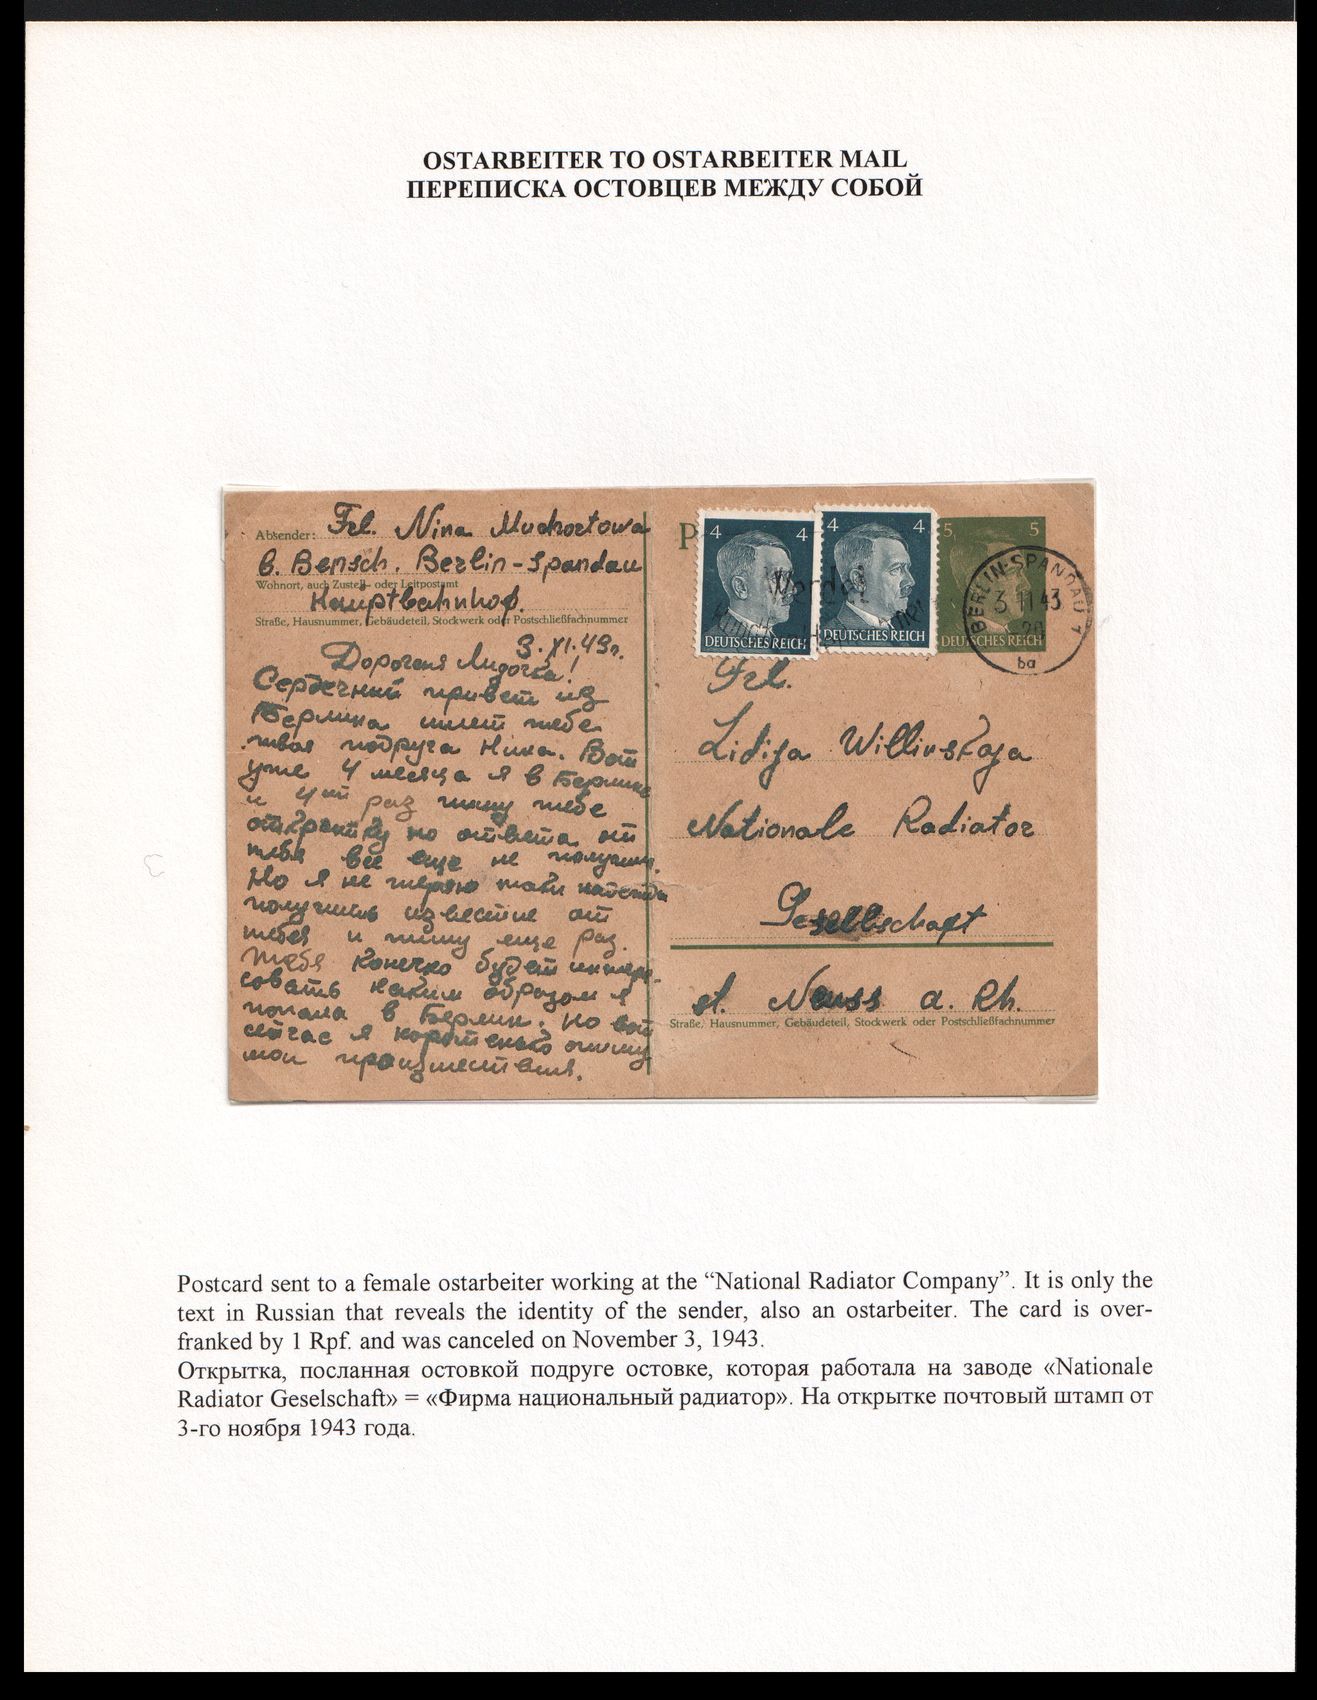 OSTARBEITER TO OSTARBEITER MAIL
ПЕРЕПИСКА ОСТОВЦЕВ МЕЖДУ СОБОЙ
Absender: Frl. Nina Muchortowa
b. Bensch. Berlin-Spandau
Wohnort, auch Zustell- oder Leitpostamt
Hauptbahnhof.
Straße, Hausnummer, Gebäudeteil, Stockwerk oder Postschließfachnummer
3.XI.43г.
Дорогая Лидочка!
Сердечный привет из
Берлина шлет тебе
твоя подруга Нина. Вот
уже 4 месяца я в Берлине
и 4ый раз пишу тебе
открытку но ответа от
тебя все еще не получила.
Но я не теряю надежды
получить известие от
тебя и пишу еще раз.
Тебя конечно будет интере-
совать каким образом я
попала в Берлин. Но вот
сейчас я коротенько опишу
мои происшествия.
P
4 4
DEUTSCHES REICH
4 4
DEUTSCHES REICH
5 5
DEUTSCHES REICH
BERLIN-SPANDAU 1
3.11.43
20
ba
Werde
Frl.
Lidija Willinskaja
Nationale Radiator
Gesellschaft
st. Neuss a. Rh.
Straße, Hausnummer, Gebäudeteil, Stockwerk oder Postschließfachnummer
Postcard sent to a female ostarbeiter working at the “National Radiator Company”. It is only the
text in Russian that reveals the identity of the sender, also an ostarbeiter. The card is over-
franked by 1 Rpf. and was canceled on November 3, 1943.
Открытка, посланная остовкой подруге остовке, которая работала на заводе «Nationale
Radiator Geselschaft» = «Фирма национальный радиатор». На открытке почтовый штамп от
3-го ноября 1943 года.